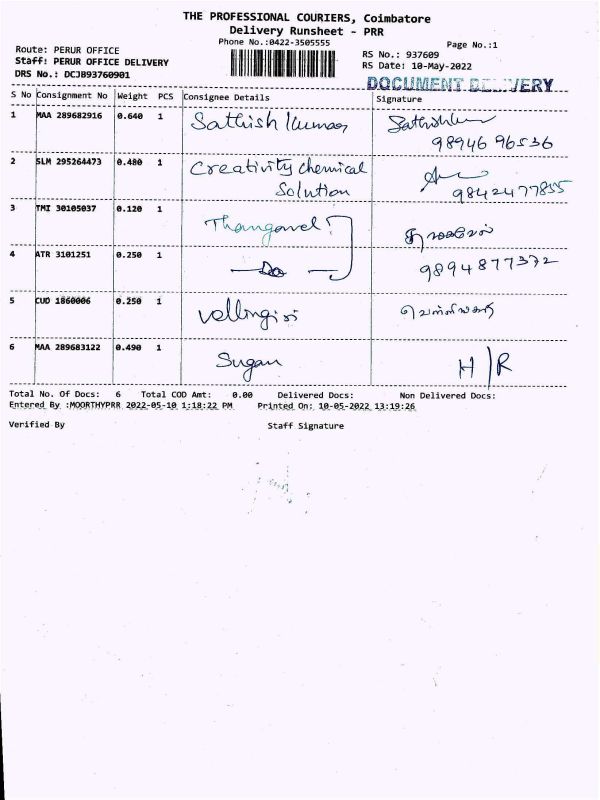 THE PROFESSIONAL COURIERS, Coimbatore
Delivery Runsheet - PRR
Phone No.:0422-3505555
Page No.:1
Route: PERUR OFFICE
RS No.: 937609
Staff: PERUR OFFICE DELIVERY
RS Date: 10-May-2022
DRS No.: DCJ893760901
DOCUMENT
S No Consignment No Weight PCS Consignee Details Signature
1 MAA 289682916 0.640 1 Sathish Kumar Sathishkumar
98946 96536
2 SLM 295264473 0.480 1 Creativity chemical
Solution 9842477855
3 TMI 30105037 0.120 1 Thangavel தங்கவேல்
4 ATR 3101251 0.250 1 — Do — 9894877372
5 CUD 1860006 0.250 1 vellingiri
6 MAA 289683122 0.490 1 Sugan H/R
Total No. Of Docs: 6 Total COD Amt: 0.00 Delivered Docs: Non Delivered Docs:
Entered By :MOORTHYPRR 2022-05-10 1:18:22 PM Printed On: 10-05-2022 13:19:26
Verified By Staff Signature